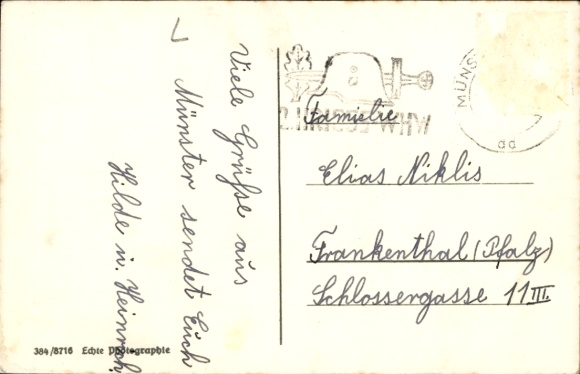 Viele Grüße aus
Münster sendet Euch
Hilde u. Heinrich.
MÜNS
aa
WHW
Familie
Elias Niklis
Frankenthal (Pfalz)
Schlossergasse 11 III.
384/8716 Echte Photographie